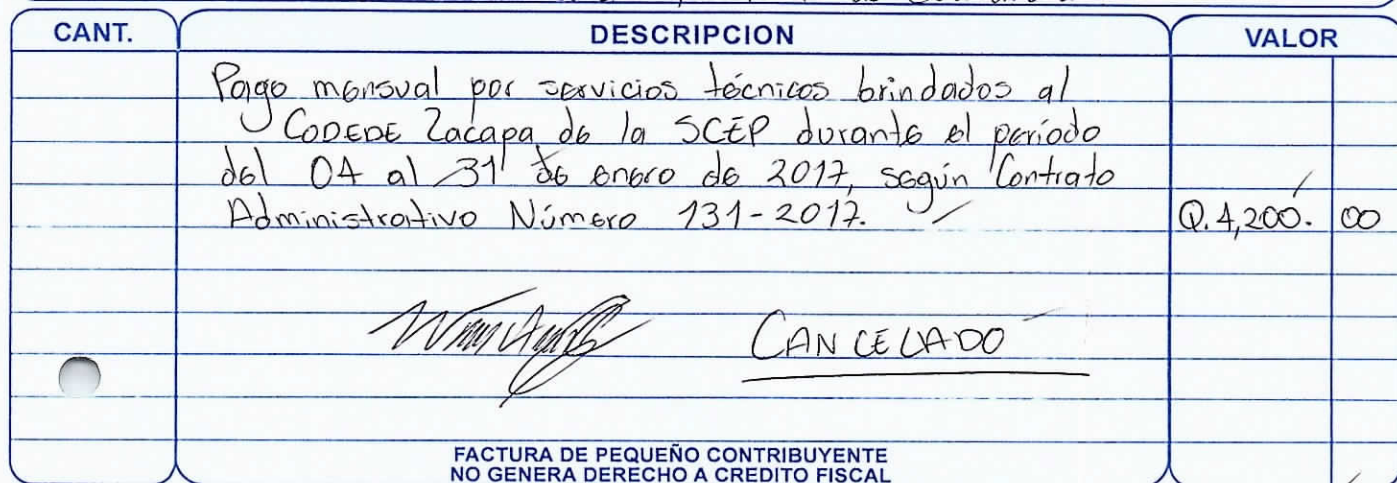 CANT. DESCRIPCION VALOR
Pago mensual por servicios técnicos brindados al
CODEDE Zacapa de la SCEP durante el período
del 04 al 31 de enero de 2017, según Contrato
Administrativo Número 131-2017. Q.4,200. 00
CANCELADO
FACTURA DE PEQUEÑO CONTRIBUYENTE
NO GENERA DERECHO A CREDITO FISCAL